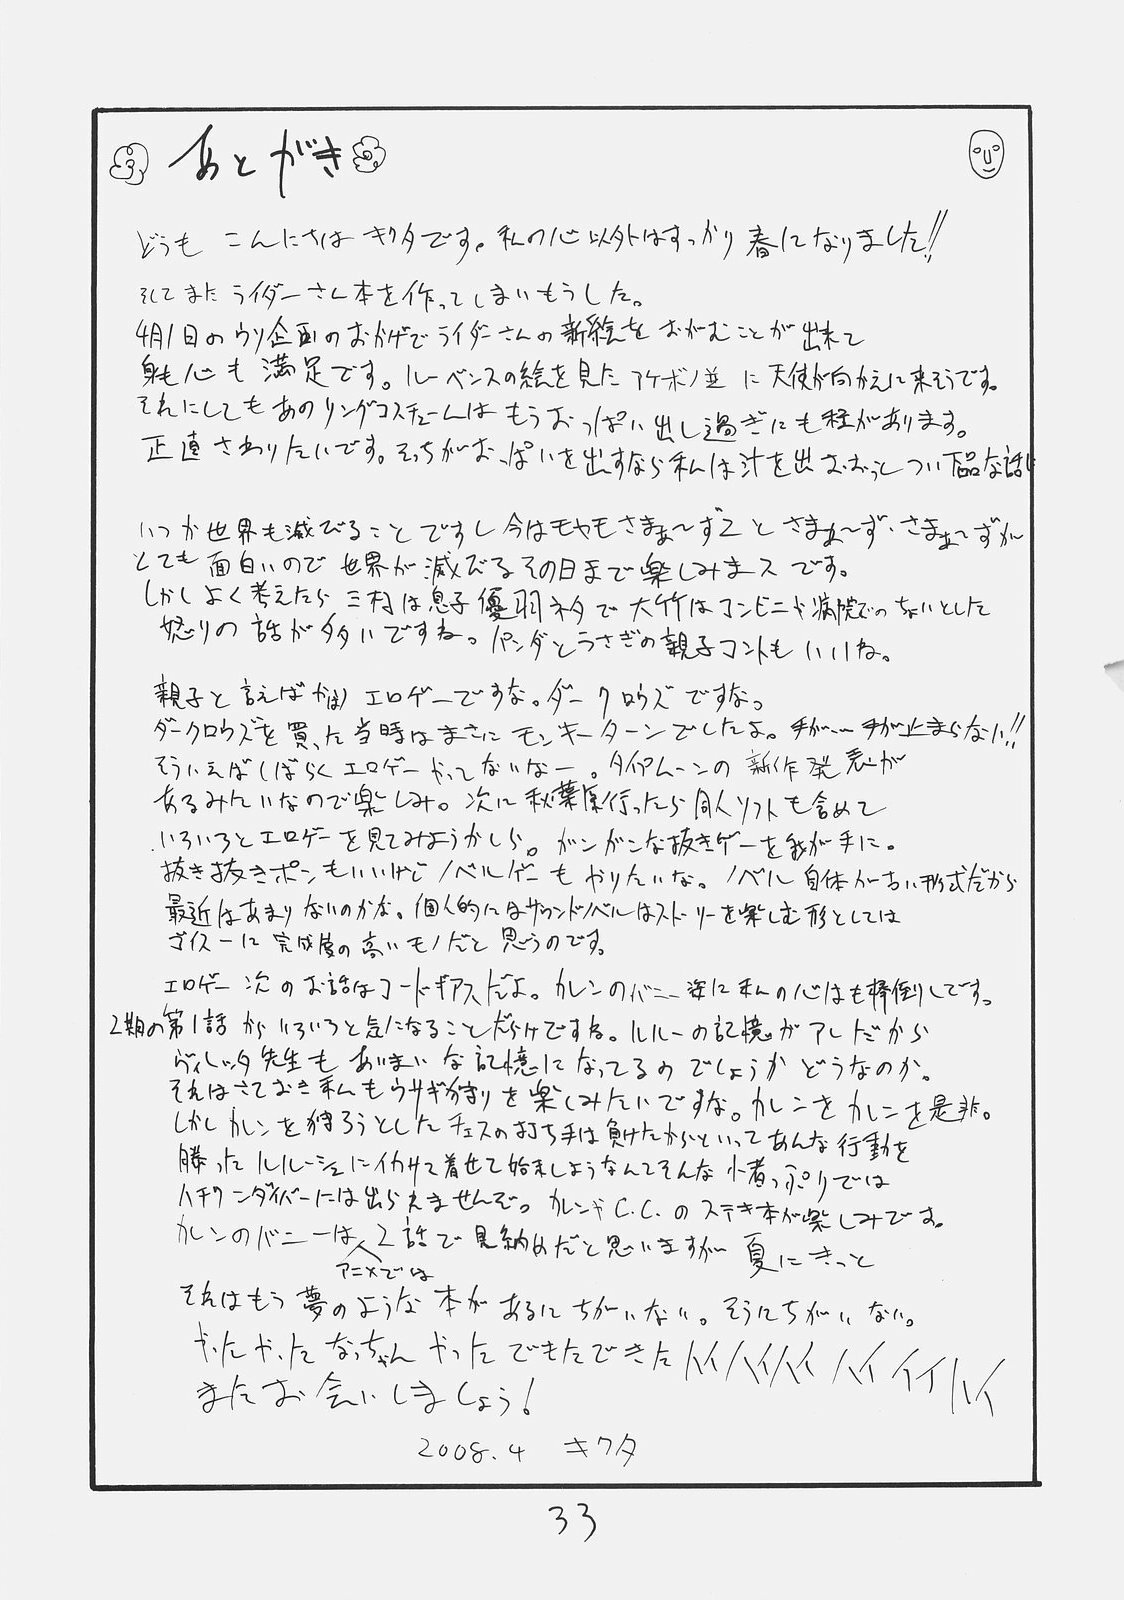 あとがき
どうも こんにちは キクタです。私の心以外はすっかり春になりました!!
そしてまたライダーさん本を作ってしまいもうした。
4月1日のウソ企画のおかげでライダーさんの新絵をおがむことが出来て
身も心も満足です。ルーベンスの絵を見たアケボノ並に天使が向かえに来そうです。
それにしてもあのリングコスチュームはもうおっぱい出し過ぎにも程があります。
正直さわりたいです。そっちがおっぱいを出すなら私は汁を出おおっとつい下品な話に
いつか世界も滅びることですし今はモヤモヤさまぁ〜ず2とさまぁ〜ず・さまぁ〜ずが
とても面白いので世界が滅びるその日まで楽しみまスです。
しかしよく考えたら三村は息子優羽ネタで大竹はコンビニや病院でのちょいとした
怒りの話が多いですね。パンダとうさぎの親子コントもいいね。
親子と言えばエロゲーですな。ダークロウズですな。
ダークロウズを買った当時はまさにモンキーターンでしたよ。手が…手が止まらない!!
そういえばしばらくエロゲーやってないなー。タイアムーンの新作発表が
あるみたいなので楽しみ。次に秋葉原行ったら同人ソフトも含めて
いろいろとエロゲーを見てみようかしら。ガンガンな抜きゲーを我が手に。
抜き抜きポンもいいけどノベルゲーもやりたいな。ノベル自体が古い形式だから
最近はあまりないのかな。個人的にはサウンドノベルはストーリーを楽しむ形としては
ゴイスーに完成度の高いモノだと思うのです。
エロゲー次のお話はコードギアスだよ。カレンのバニー姿に私の心はも棒倒しです。
2期の第1話からいろいろと気になることだらけですね。ルルーの記憶がアレだから
ヴィレッタ先生もあいまいな記憶になってるのでしょうかどうなのか。
それはさておき私もウサギ狩りを楽しみたいですな。カレンをカレンを是非。
しかしカレンを狩ろうとしたチェスの打ち手は負けたからといってあんな行動を
勝ったルルーシュにイカサマ着せて始末しようなんてそんな小者っぷりでは
ハチワンダイバーには出られませんぞ。カレンやC.C.のステキ本が楽しみです。
カレンのバニーはアニメでは2話で見納めだと思いますが夏にきっと
それはもう夢のような本があるにちがいない。そうにちがいない。
やったやったなっちゃんやったでもたできたハイハイハイハイイイハイ
またお会いしましょう!
2008.4 キクタ
33